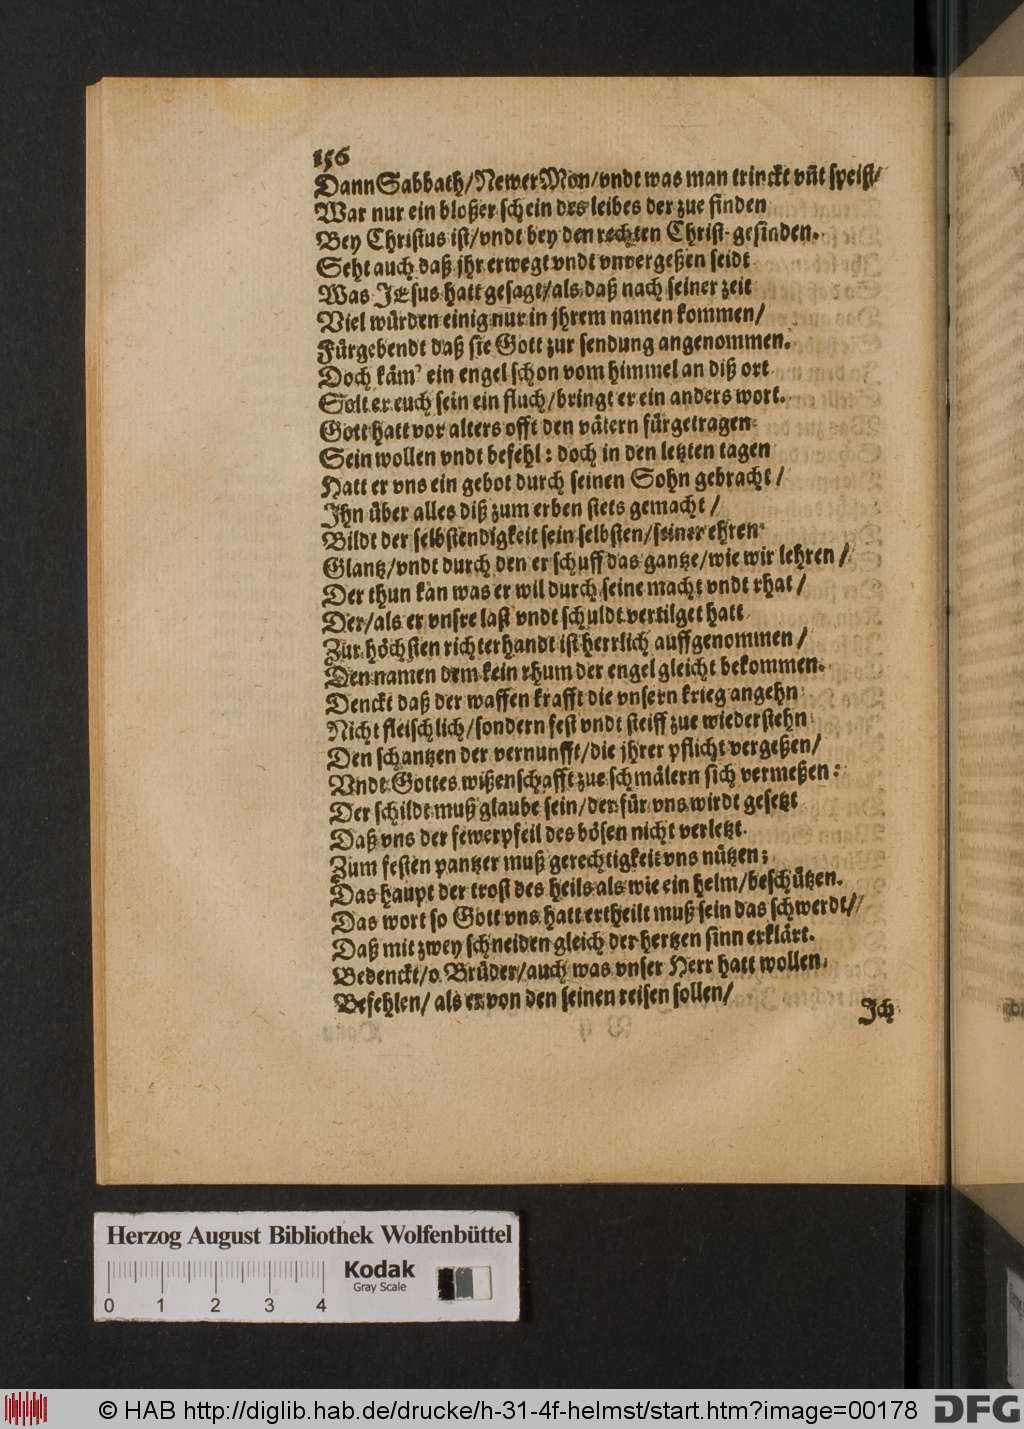 156
Dann Sabbath/Newer Mon/vndt was man trinckt vñt speist/
War nur ein bloßer schein des leibes der zue finden
Bey Christus ist/vndt bey den rechten Christ-gesinden.
Seht auch daß jhr erwegt vndt vnvergeßen seidt
Was JEsus hatt gesagt/als daß nach seiner zeit
Viel würden einig nur in jhrem namen kommen/
Fürgebendt daß sie Gott zur sendung angenommen.
Doch käm' ein engel schon vom himmel an diß ort
Solt er euch sein ein fluch/bringt er ein anders wort.
Gott hatt vor alters offt den vätern fürgetragen
Sein wollen vndt befehl: doch in den letzten tagen
Hatt er vns ein gebot durch seinen Sohn gebracht/
Jhn über alles diß zum erben stets gemacht/
Bildt der selbstendigkeit sein selbsten/seiner ehren
Glantz/vndt durch den er schuff das gantze/wie wir lehren/
Der thun kan was er wil durch seine macht vndt rhat/
Der/als er vnsre last vndt schuldt vertilget hatt
Zur höchsten richterhandt ist herrlich auffgenommen/
Den namen dem kein rhum der engel gleicht bekommen.
Denckt daß der waffen krafft die vnsern krieg angehn
Nicht fleischlich/sondern fest vndt steiff zue wiederstehn
Den schantzen der vernunfft/die jhrer pflicht vergeßen/
Vndt Gottes wißenschafft zue schmälern sich vermeßen:
Der schildt muß glaube sein/der für vns wirdt gesetzt
Daß vns der fewerpfeil des bösen nicht verletzt.
Zum festen pantzer muß gerechtigkeit vns nützen;
Das haupt der trost des heils als wie ein helm/beschützen.
Das wort so Gott vns hatt ertheilt muß sein das schwerdt/
Daß mit zwey schneiden gleich der hertzen sinn erklärt.
Bedenckt/o Brüder/auch was vnser Herr hatt wollen
Befehlen/ als er von den seinen reisen sollen/
Jch
Herzog August Bibliothek Wolfenbüttel
Kodak
Gray Scale
0 1 2 3 4
© HAB http://diglib.hab.de/drucke/h-31-4f-helmst/start.htm?image=00178
DFG